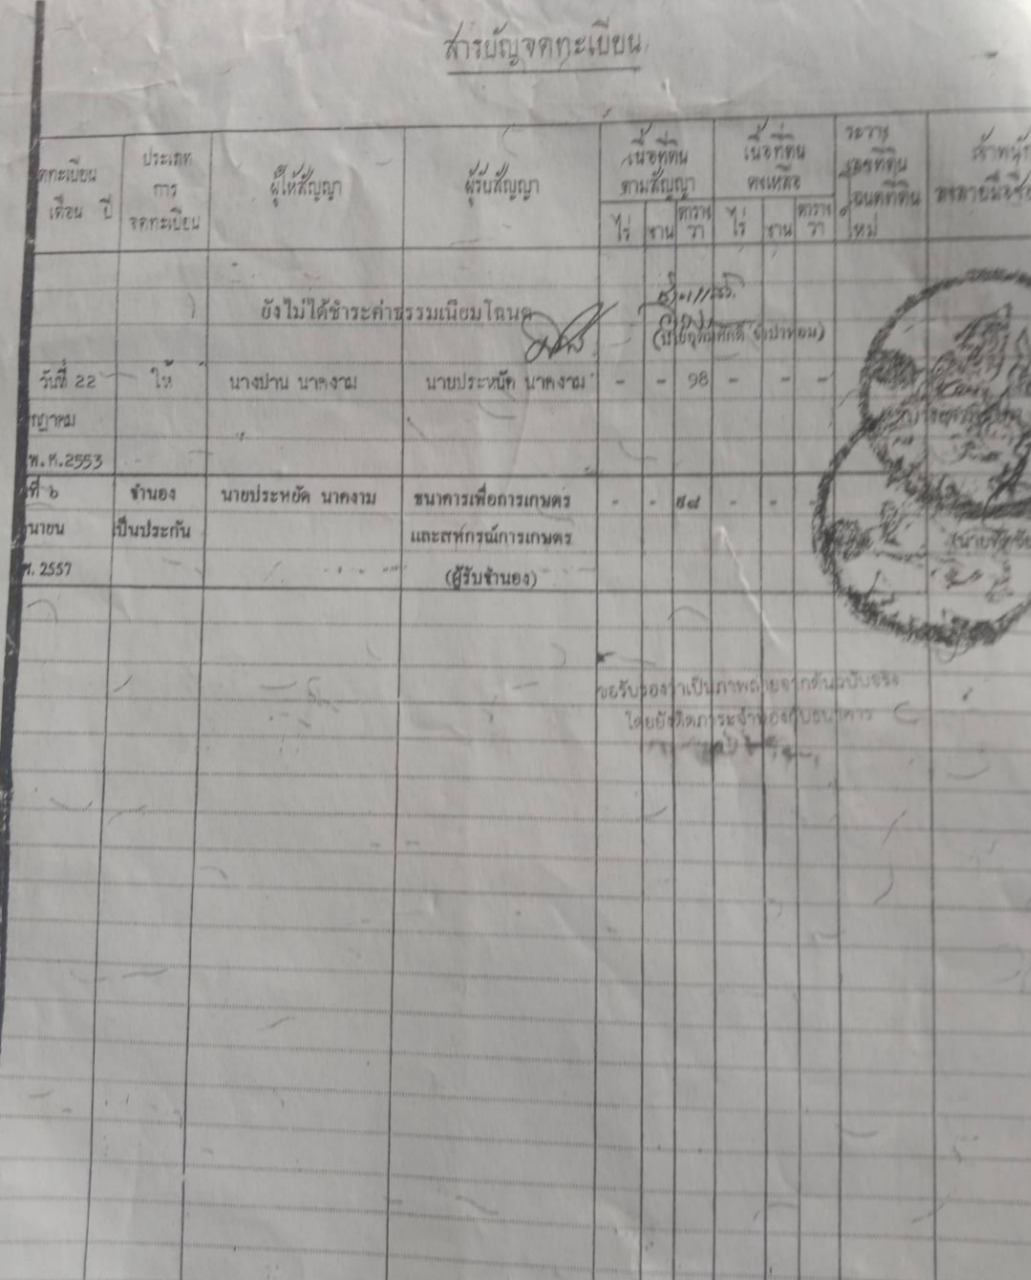 สารบัญจดทะเบียน
ดทะเบียน
เดือน ปี
ประเภท
การ
จดทะเบียน
ผู้ให้สัญญา
ผู้รับสัญญา
เนื้อที่ดิน
ตามสัญญา
ไร่ งาน ตาราง
วา
เนื้อที่ดิน
คงเหลือ
ไร่ งาน ตาราง
วา
ระวาง
เลขที่ดิน
โฉนดที่ดิน
ใหม่
ยังไม่ได้ชำระค่าธรรมเนียมโฉนด
วันที่ 22 ให้ นางปาน นาคงาม นายประหยัด นาคงาม - - 98 - - -
กฎาคม
พ.ศ.2553
ที่ ๖ จำนอง นายประหยัด นาคงาม ธนาคารเพื่อการเกษตร - - ๙๘ - - -
นายน เป็นประกัน และสหกรณ์การเกษตร
ศ. 2557 (ผู้รับจำนอง)
ขอรับรองว่าเป็นภาพถ่ายจากต้นฉบับจริง
โดยยังติดภาระจำนองกับธนาคาร